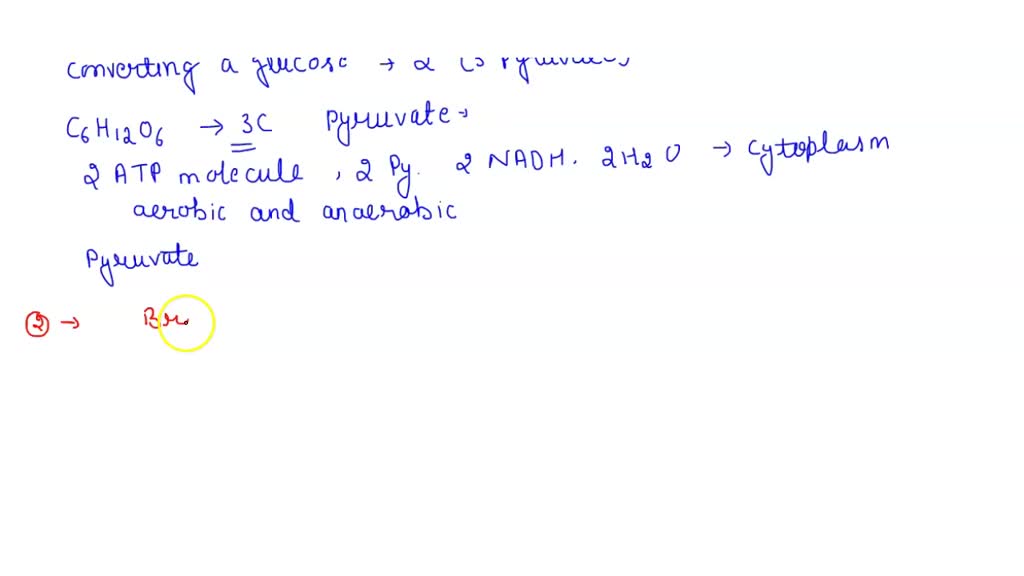 converting a glucose → 2
C6H12O6 → 3C pyruvate.
2 ATP molecule, 2 Py. 2 NADH. 2H2O → cytoplasm
aerobic and anaerobic
Pyruvate
② → Br